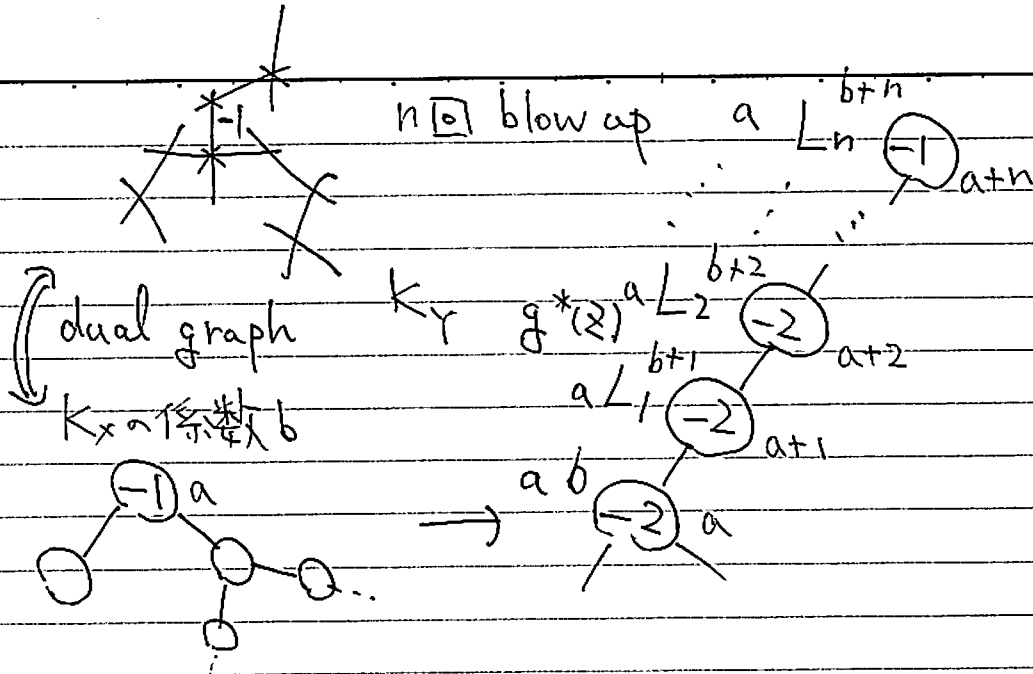 -1
n回 blow up
a L_n b+n
-1
a+n
dual graph
K_Y g*(Z) a L_2 b+2
-2
a+2
a L_1 b+1
-2
a+1
K_Xの係数b
-1 a
a b
-2 a